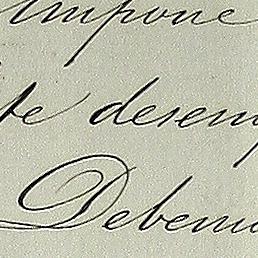 impone
te desem
Debemo